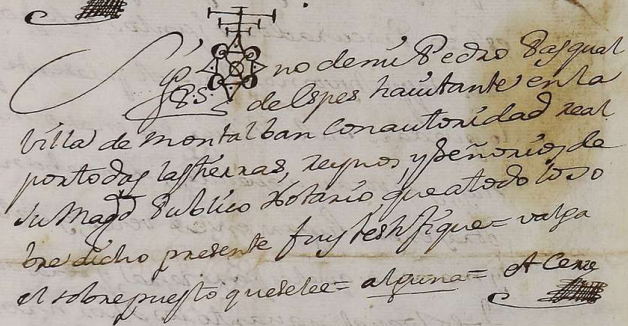 Sig no de mi Pedro Pasqual
de Espes havitante en la
villa de Montalban con autoridad real
por todas las tierras, reynos, y señorios de
su Magd Publico Notario que a todo lo so
bre dicho presente fuy testifique = valga
el sobrepuesto que se lee = alguna = et Cerre